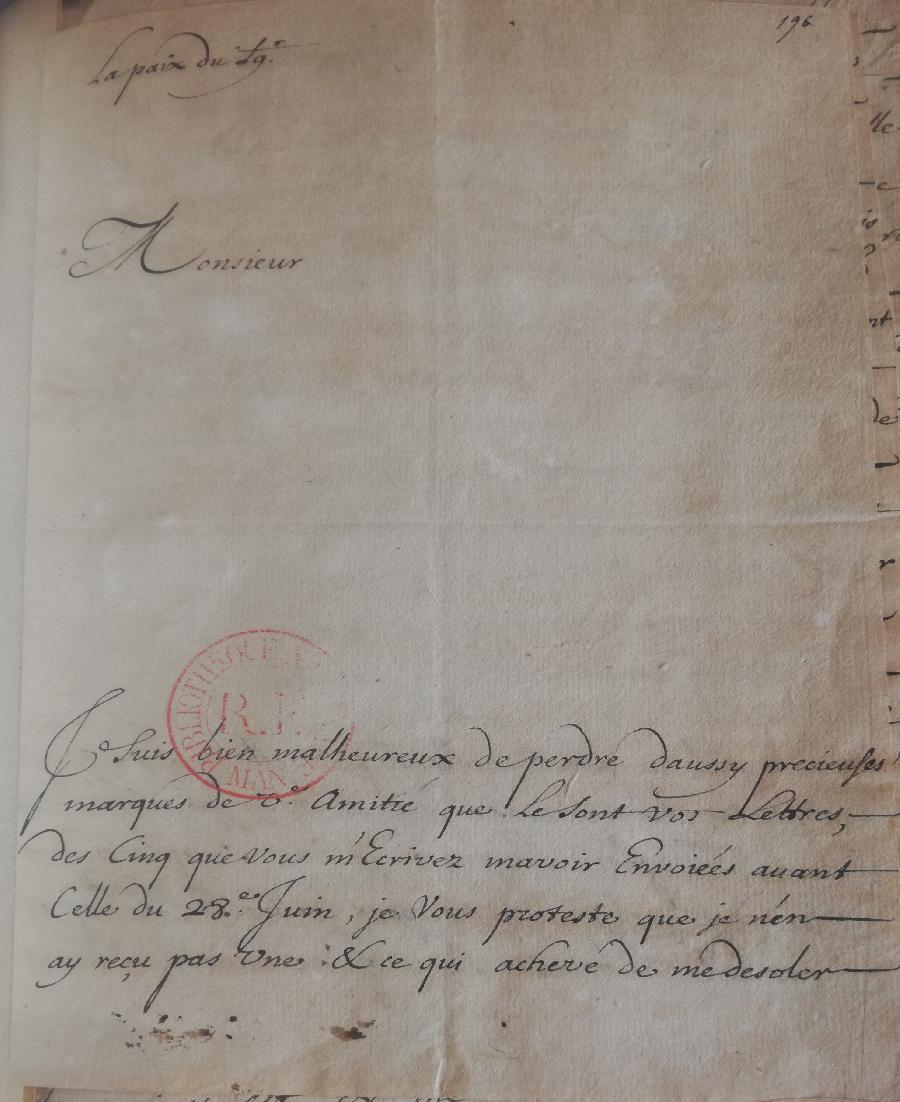 196
La paix du Sg.r
Monsieur
Je Suis bien malheureux de perdre daussy precieuses
marques de v.e Amitié que le sont vos Lettres,
des Cinq que vous m'Ecrivez mavoir Envoiées avant
Celle du 28.e Juin, je Vous proteste que je nén
ay reçu pas Vne : & ce qui acheve de me desoler
BIBLIOTHEQUE
R.F.
MAN